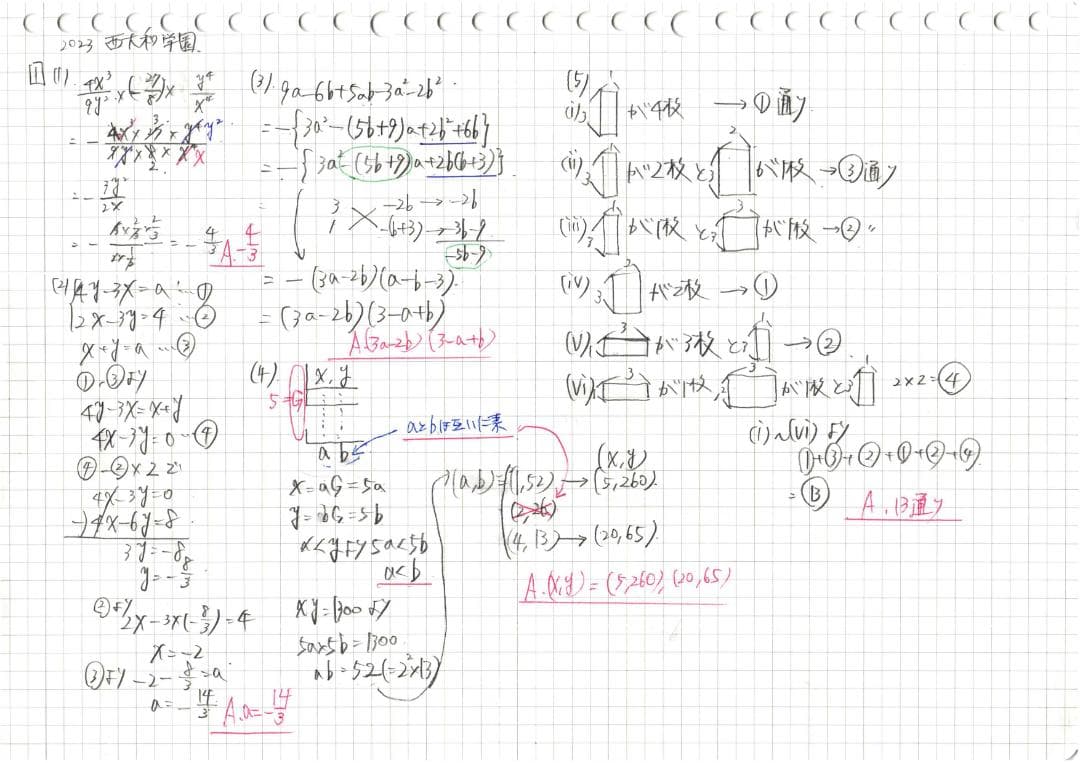 2023 西大和学園.
1 (1). 4x³/9y² × (-27/8) × y⁴/x⁴
= - 4x³ × 27 × y⁴ y² / 9y² × 8 × x⁴ x
3
2
= - 3y²/2x
= - 3 × 2/3 × 2/3 / 2 × 1/2 = - 4/3
A. - 4/3
(2) 4y-3x=a …①
2x-3y=4 …②
x+y=a …③
①,③より
4y-3x=x+y
4x-3y=0 …④
④-②×2で
4x-3y=0
-) 4x-6y=8
3y=-8
y=-8/3
②より
2x-3×(-8/3)=4
x=-2
③より -2-8/3=a
a=-14/3
A. a=-14/3
(3). 9a-6b+5ab-3a²-2b²
=-{3a²-(5b+9)a+2b²+6b}
=-{3a²-(5b+9)a+2b(b+3)}
=
3 -2b → -2b
1 -(b+3) → -3b-9
-5b-9
= -(3a-2b)(a-b-3).
= (3a-2b)(3-a+b)
A.(3a-2b)(3-a+b)
(4).
5=G) x, y
a b
aとbは互いに素
x=aG=5a
y=bG=5b
x<yより5a<5b
a<b
xy=1300より
5a×5b=1300
ab=52(=2²×13)
(x,y)
(a,b)=(1,52)→(5,260).
(2,26)
(4,13)→(20,65).
A.(x,y)=(5,260),(20,65)
(5)
(i) 3 1 が4枚 → ①通り
(ii) 3 1 が2枚と 3 2 が1枚 → ③通り
(iii) 3 1 が1枚と 3 3 が1枚 → ② 〃
(iv) 3 2 が2枚 → ①
(v) 1 3 が3枚と 3 1 → ②
(vi) 1 3 が1枚, 2 3 が1枚と 3 1 2×2=④
(i)~(vi)より
①+③+②+①+②+④
=⑬
A. 13通り